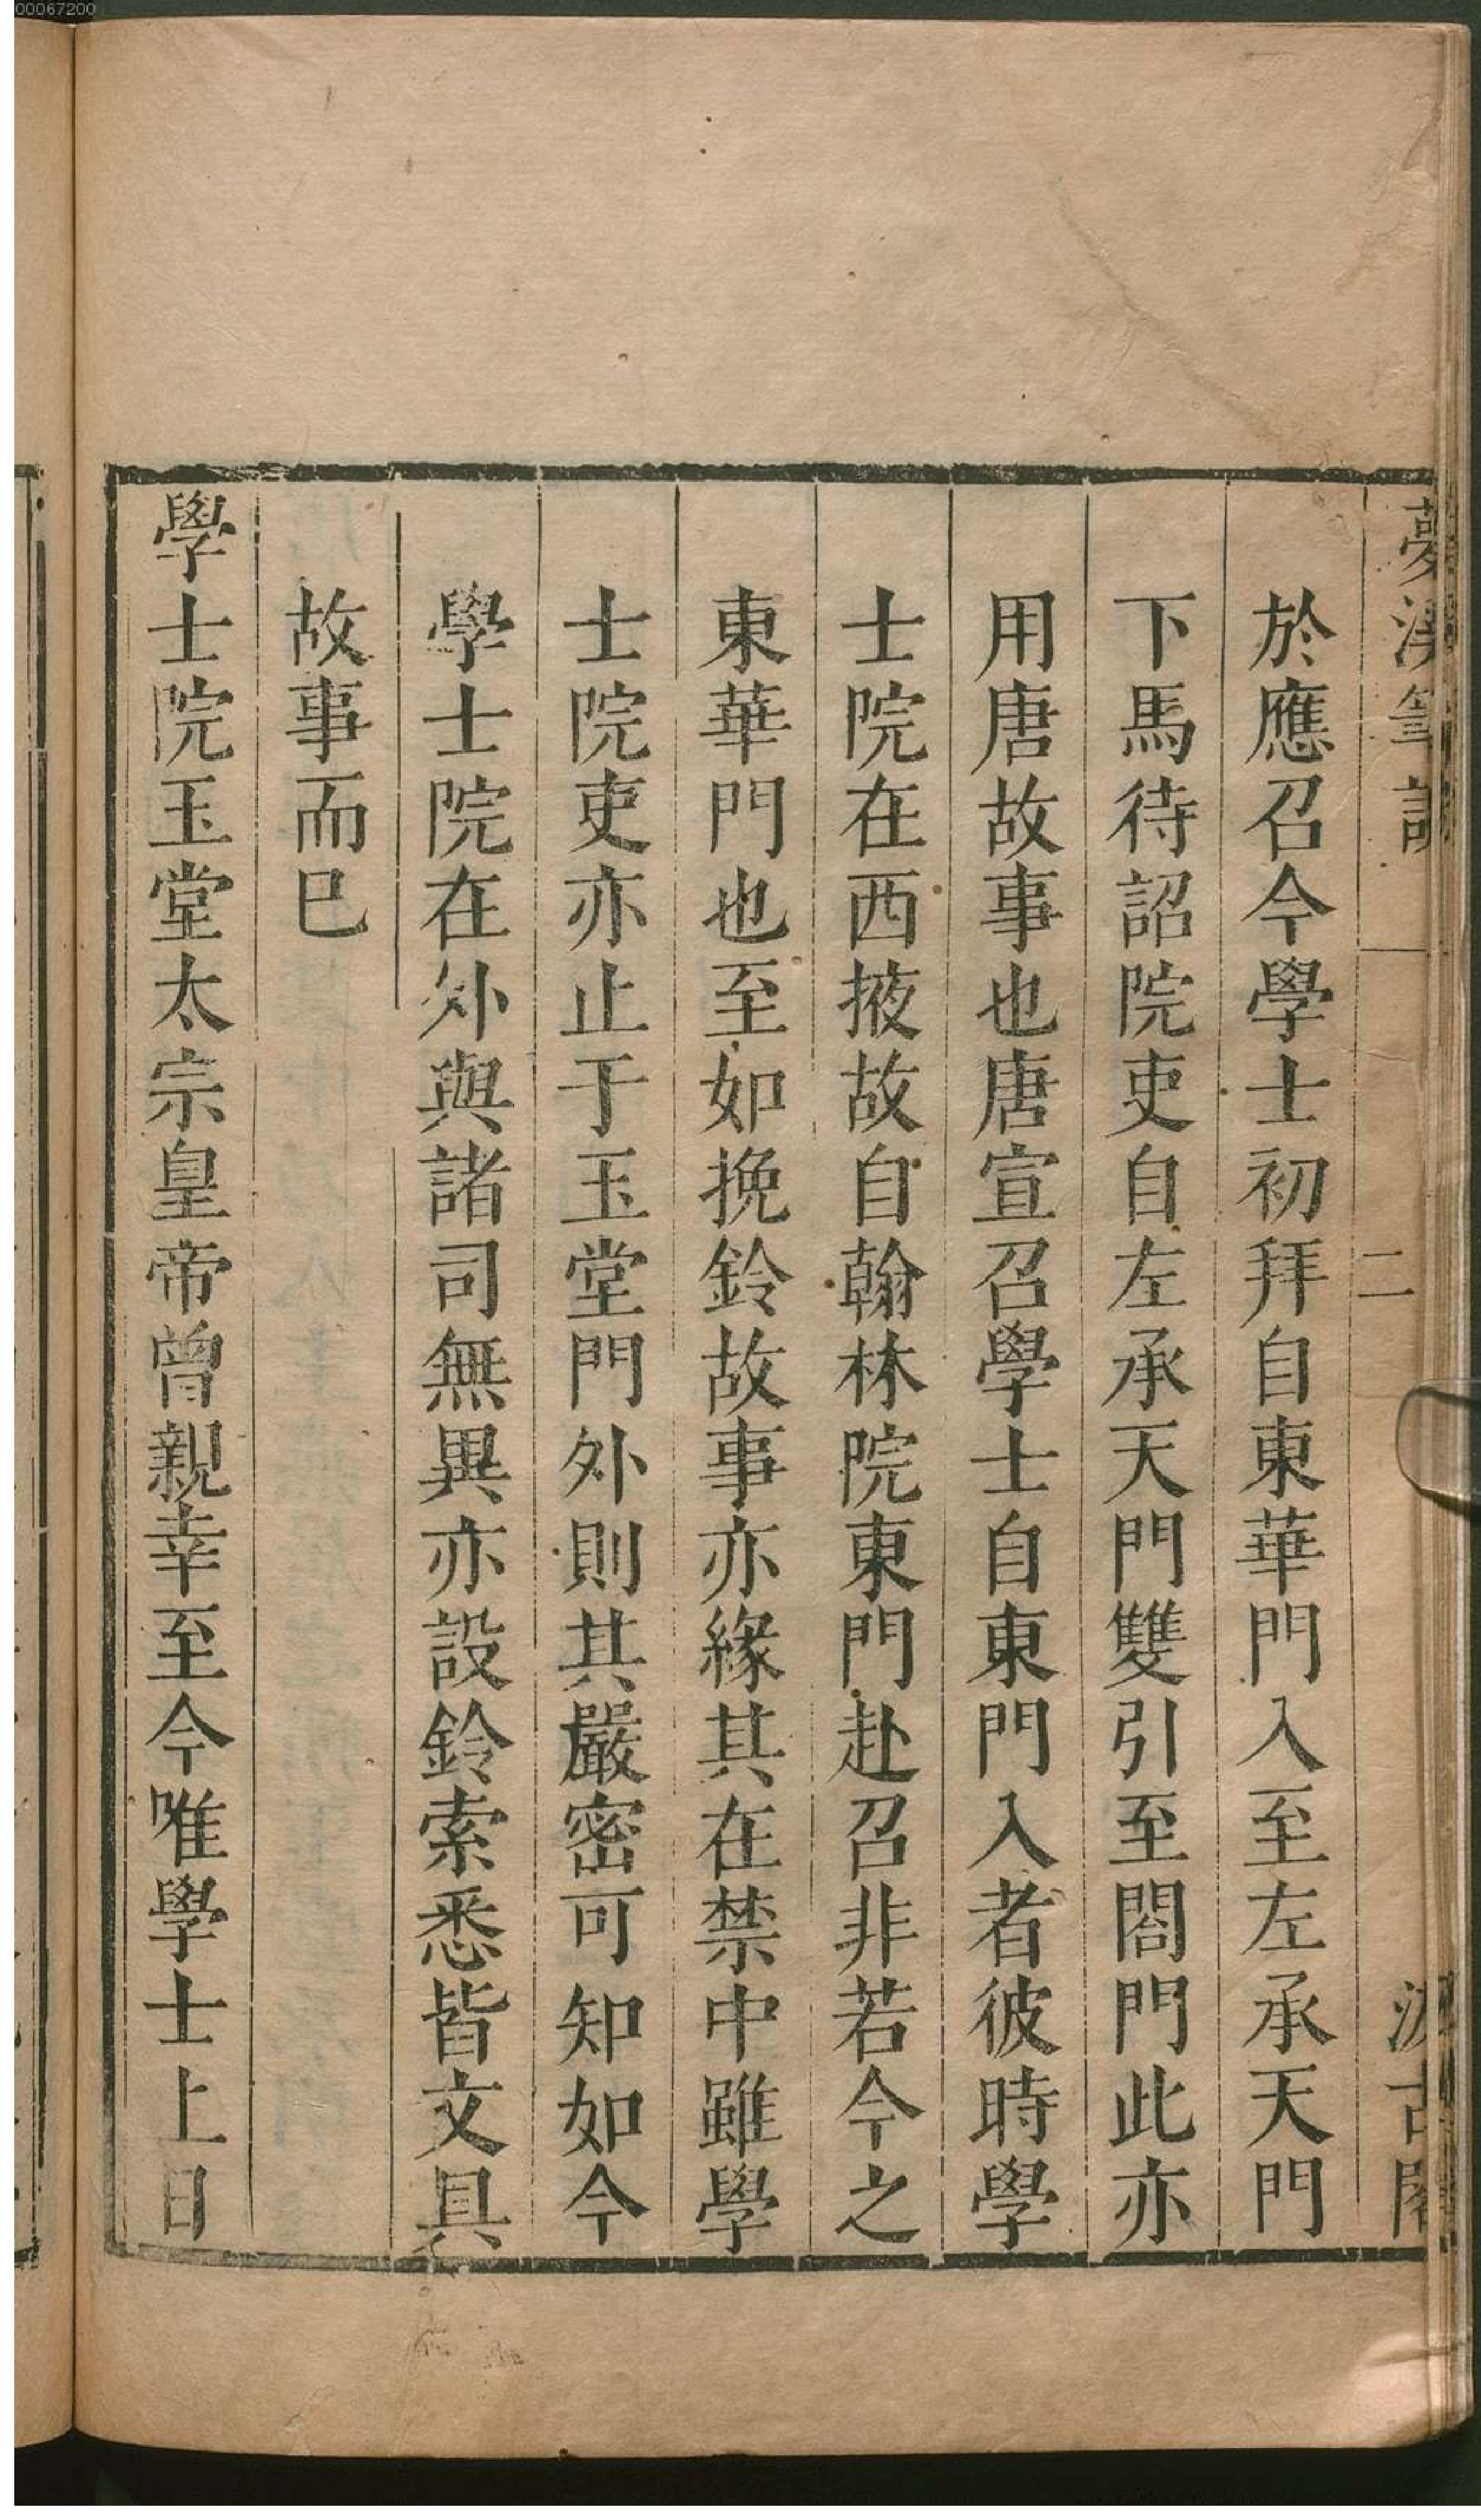 00067200
夢溪筆談
二
汲古閣
於應召今學士初拜自東華門入至左承天門
下馬待詔院吏自左承天門雙引至閤門此亦
用唐故事也唐宣召學士自東門入者彼時學
士院在西掖故自翰林院東門赴召非若今之
東華門也至如挽鈴故事亦緣其在禁中雖學
士院吏亦止于玉堂門外則其嚴密可知如今
學士院在外與諸司無異亦設鈴索悉皆文具
故事而已
學士院玉堂太宗皇帝曾親幸至今唯學士上日